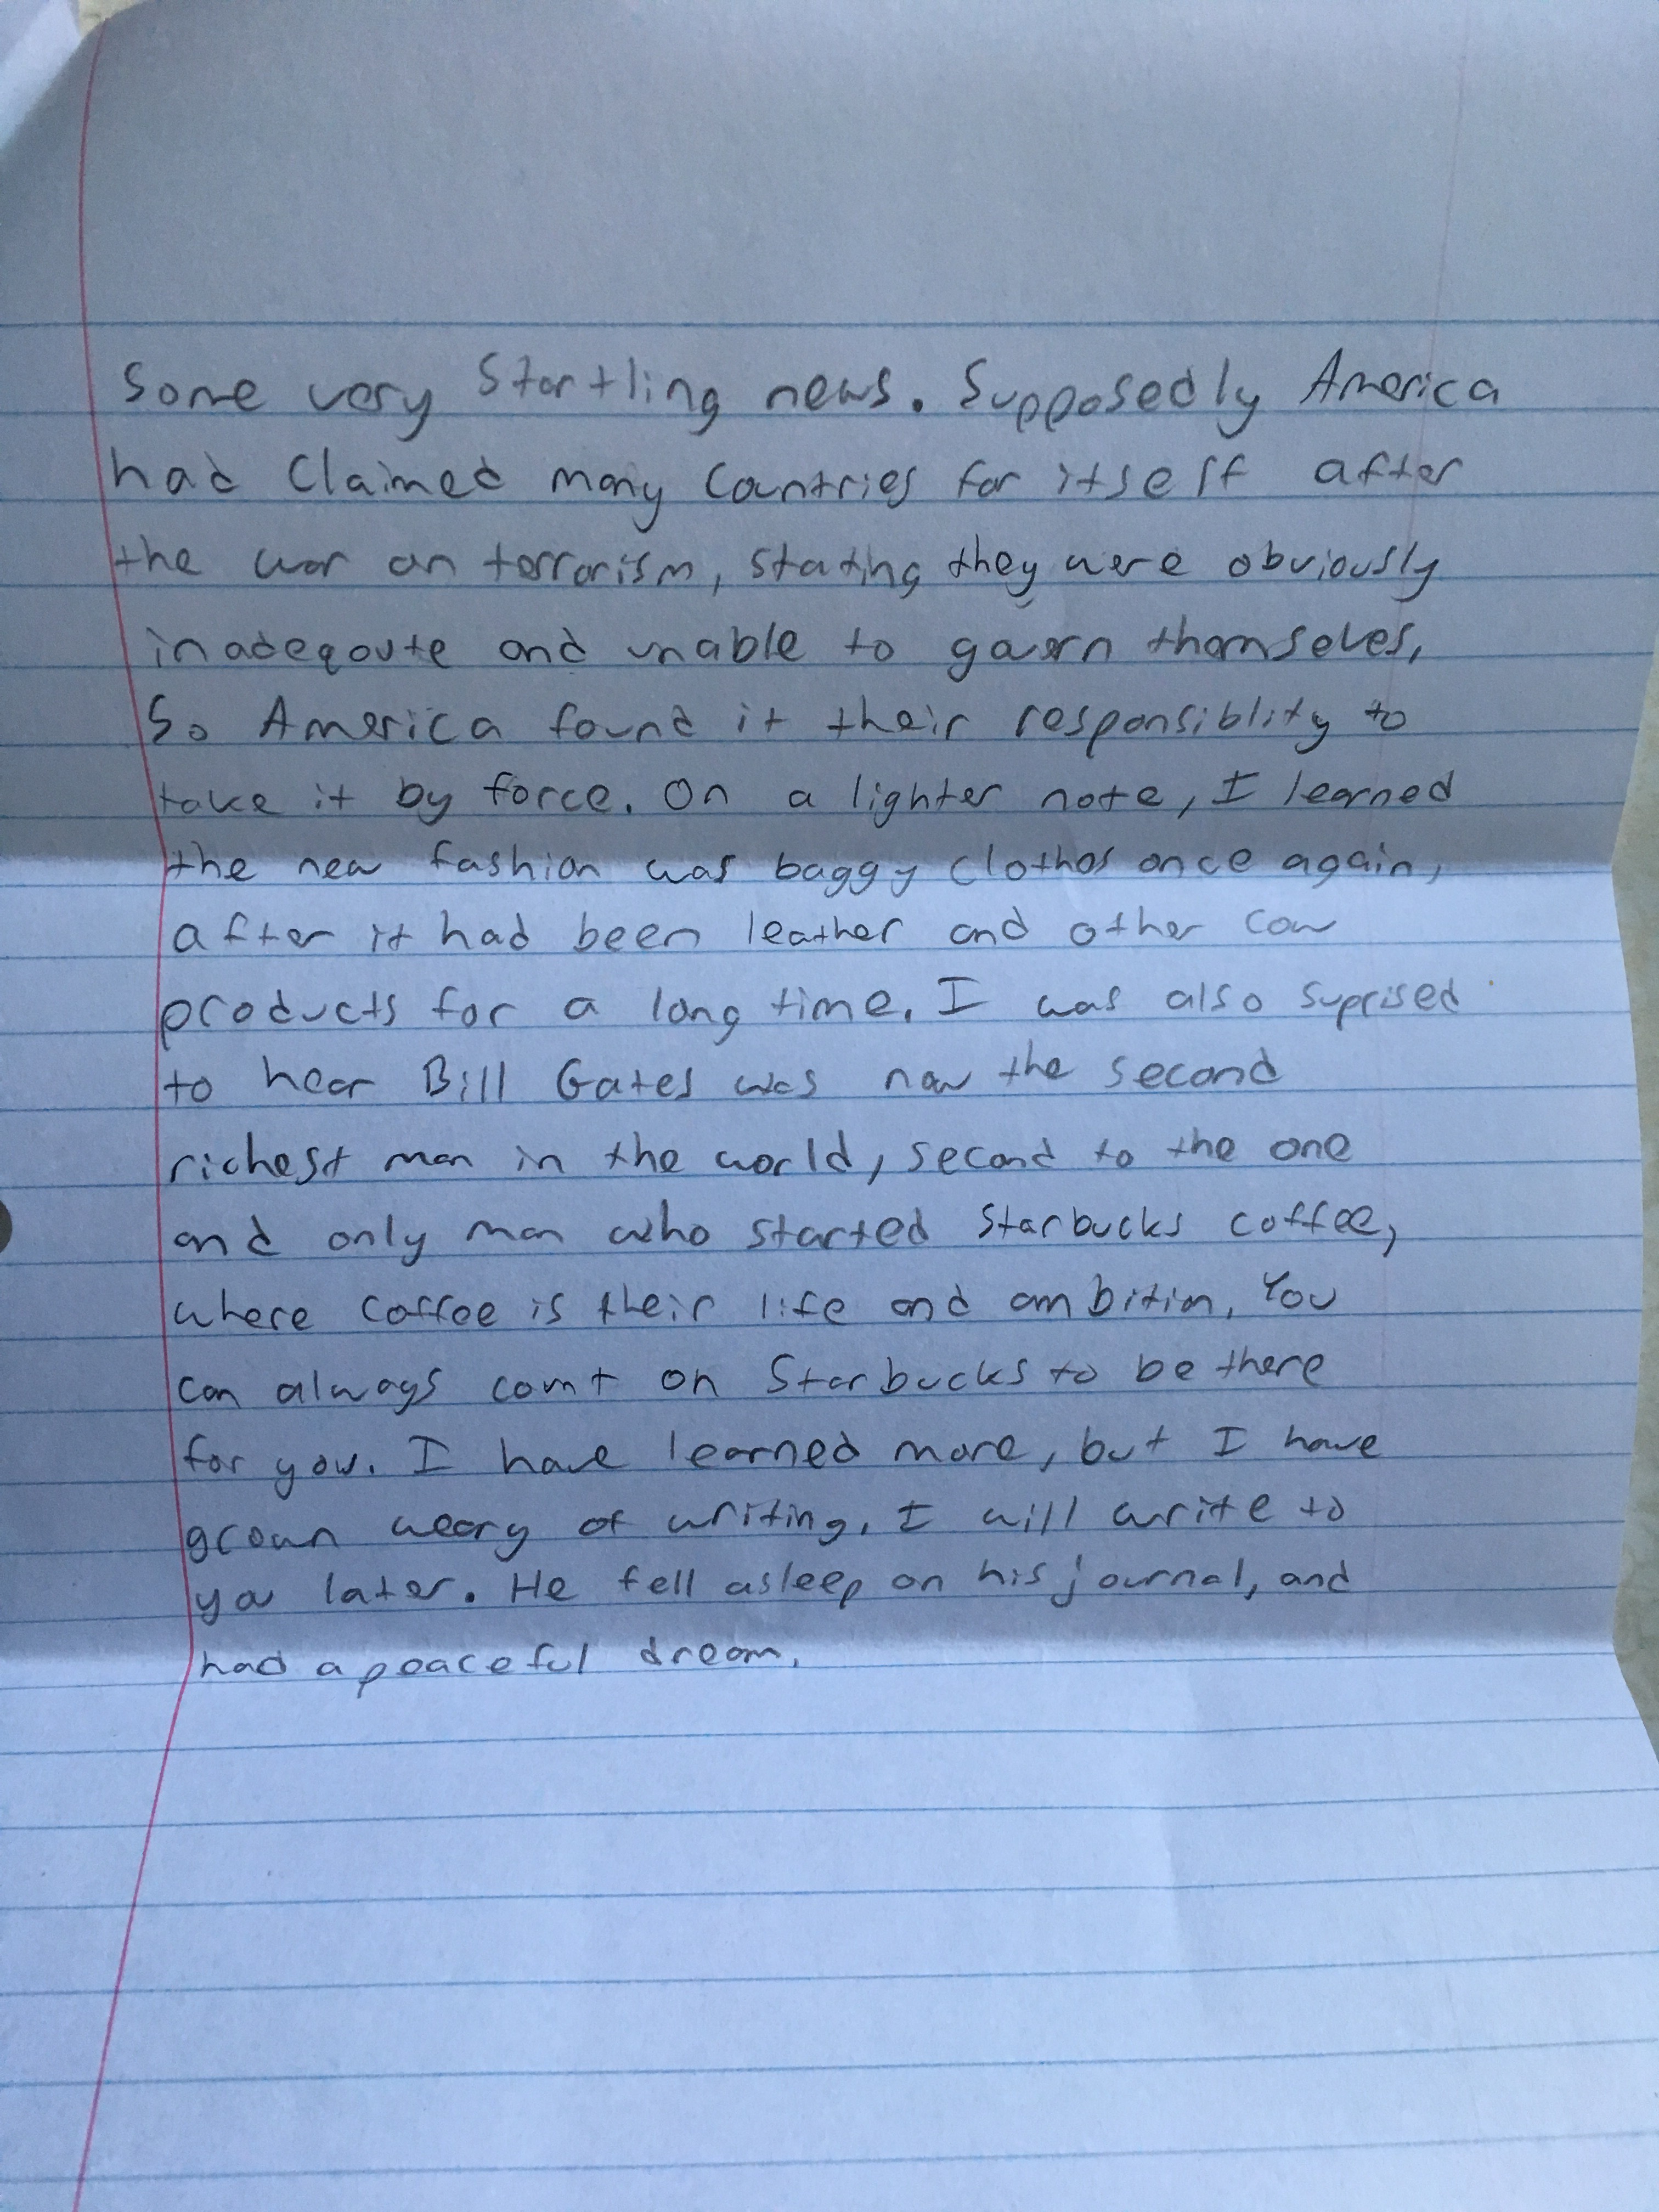 Some very Startling news. Supposedly America
had Claimed many Countries for itself after
the war on terrorism, stating they were obviously
inadeqoute and unable to govern themselves,
So America found it their responsiblity to
take it by force. On a lighter note, I learned
the new fashion was baggy clothes once again,
after it had been leather and other cow
products for a long time. I was also suprised
to hear Bill Gates was now the second
richest man in the world, second to the one
and only man who started Starbucks coffee,
where coffee is their life and ambition. You
can always count on Starbucks to be there
for you. I have learned more, but I have
grown weary of writing. I will write to
you later. He fell asleep on his journal, and
had a peaceful dream.